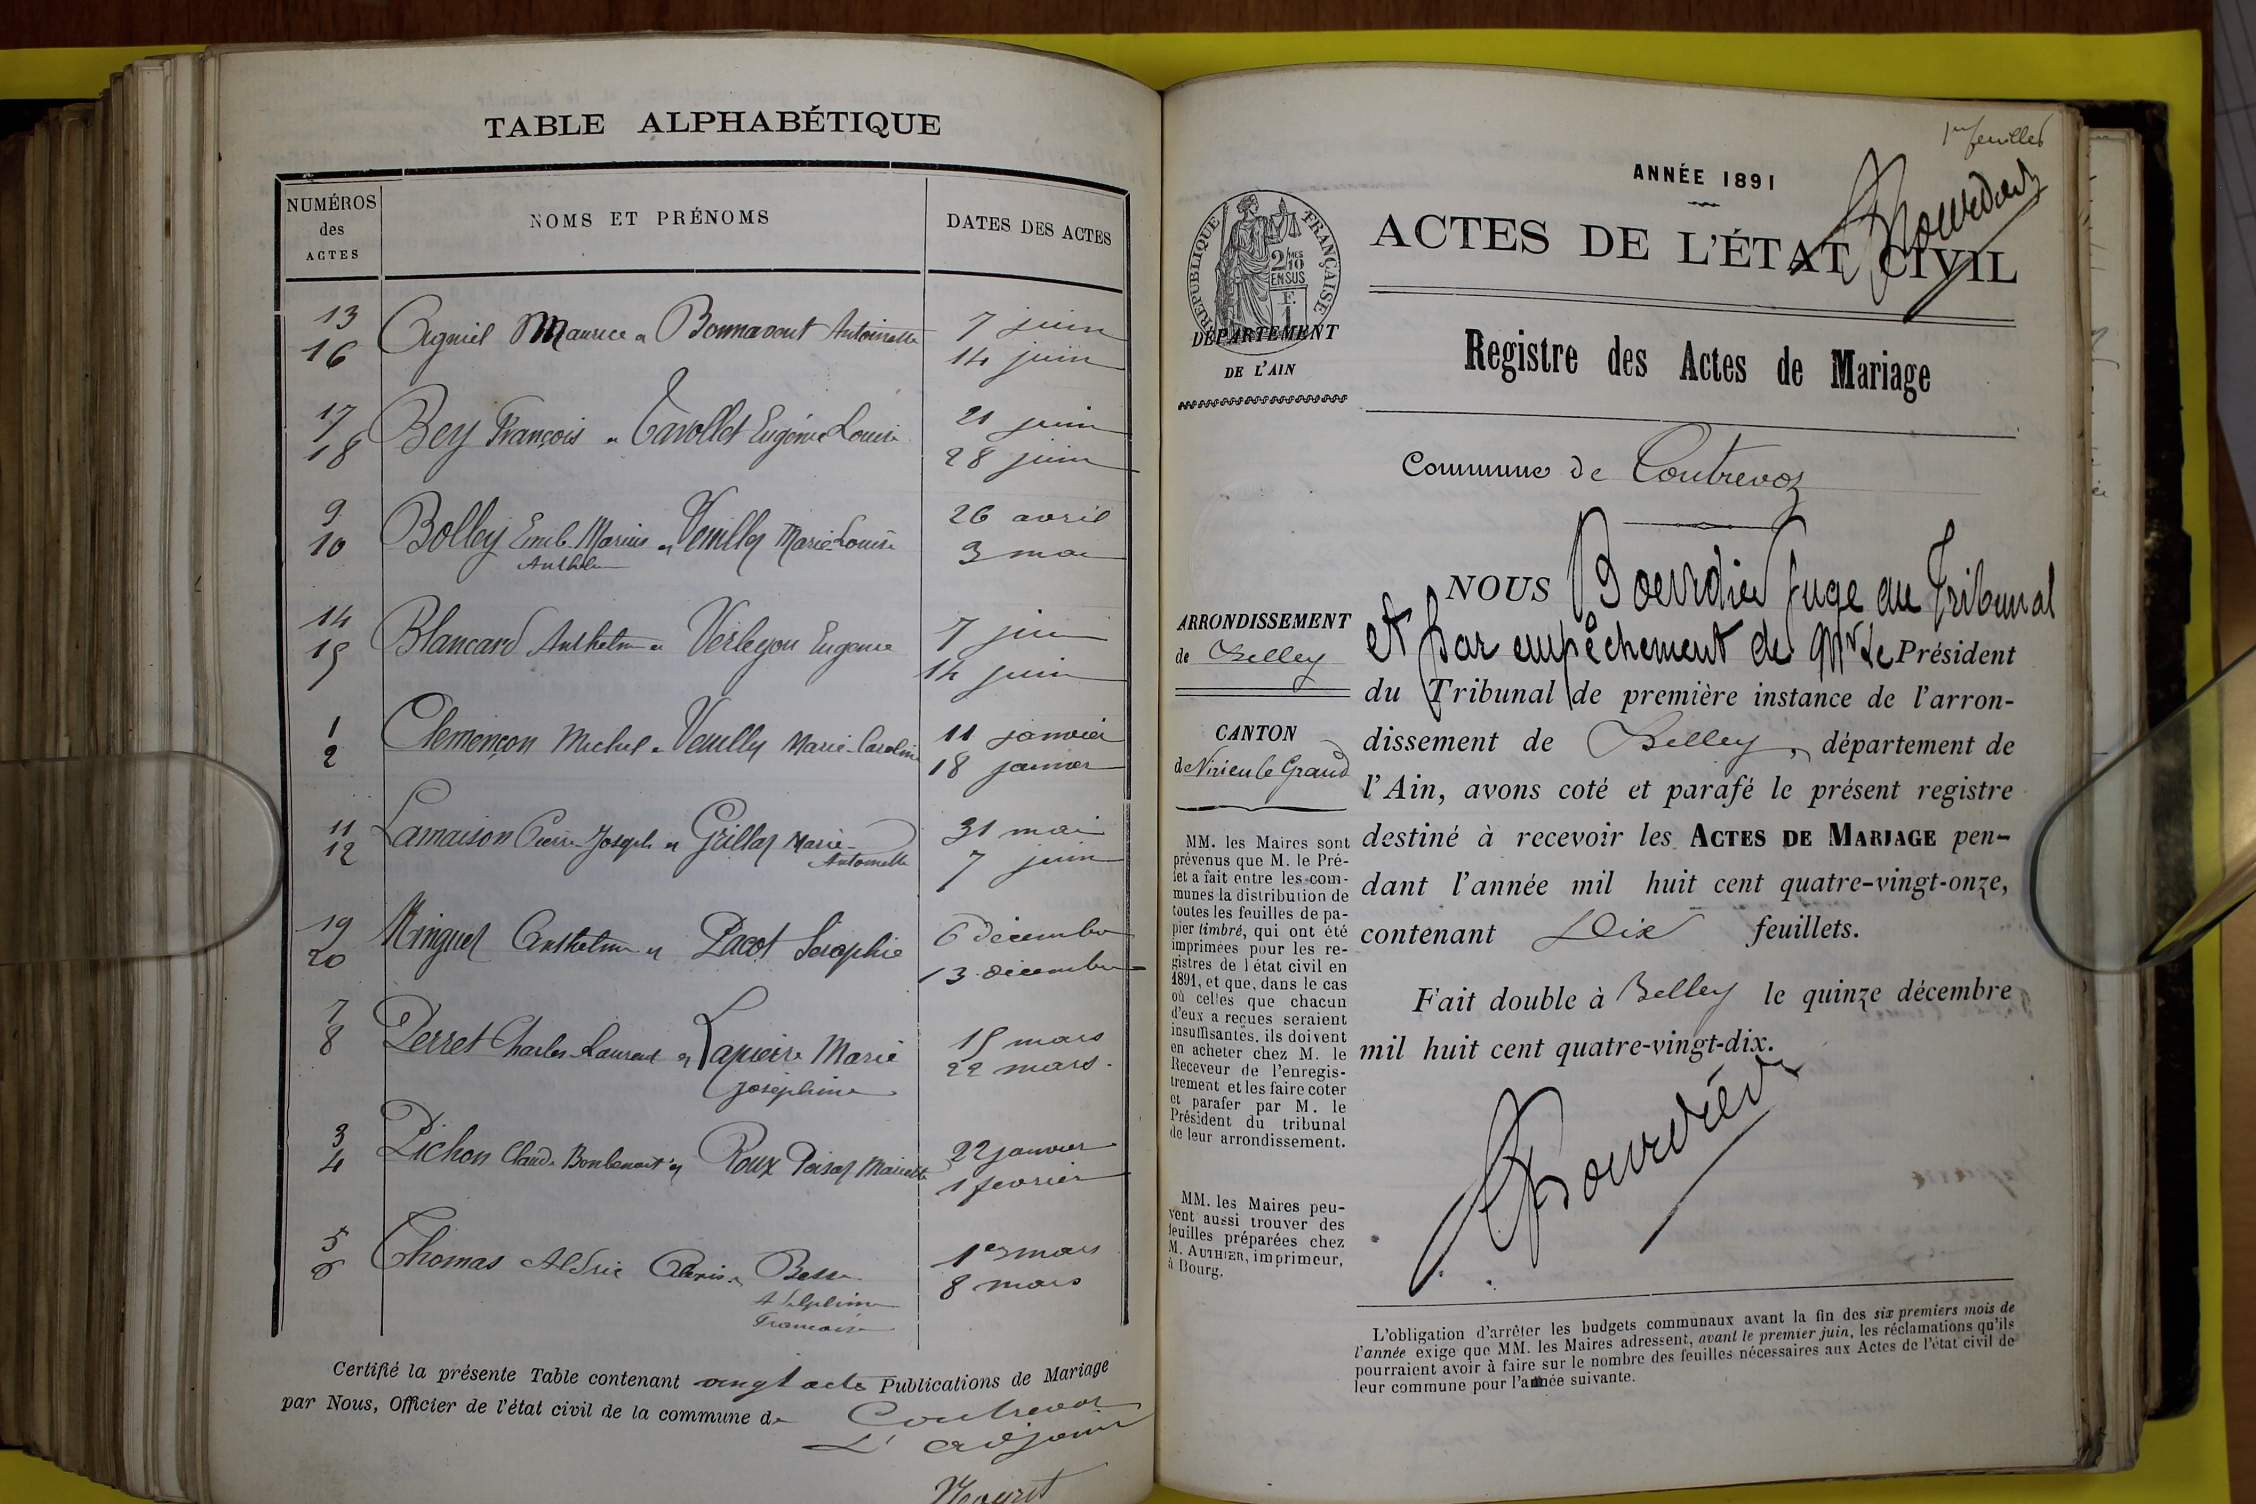 TABLE ALPHABÉTIQUE
NUMÉROS
des
ACTES
NOMS ET PRÉNOMS
DATES DES ACTES
13
16
Maurice Antoinette
7 juin
14 juin
17
18
Bey François et Tavollet Eugénie Louise
21 juin
28 juin
9
10
Bolley Marius et Marie Louise
26 avril
3 mai
14
15
Blancard Anthelme et Eugenie
7 juin
14 juin
1
2
Clemençon Michel et Marie Caroline
11 janvier
18 janvier
11
12
Lamaison Pierre Joseph et Marie
Antoinette
31 mai
7 juin
19
20
Minguet Anthelme et Pacot
6 décembre
13 décembre
7
8
Perret Charles Laurent et Marie
Joséphine
15 mars
22 mars.
3
4
Pichon Claude et Roux
22 janvier
1 fevrier
5
6
Thomas Aldric Alexis
1er mars
8 mars
Certifié la présente Table contenant vingt acte Publications de Mariage
par Nous, Officier de l'état civil de la commune de Contrevoz
L'adjoint
1er feuillet
ANNÉE 1891
Bourdier
ACTES DE L'ÉTAT CIVIL
RÉPUBLIQUE FRANÇAISE
2/10
EN SUS
DÉPARTEMENT
DE L'AIN
Registre des Actes de Mariage
Commune de Contrevoz
ARRONDISSEMENT
de Belley
CANTON
de Virieu le Grand
MM. les Maires sont
prévenus que M. le Pré-
fet a fait entre les com-
munes la distribution de
toutes les feuilles de pa-
pier timbré, qui ont été
imprimées pour les re-
gistres de l'état civil en
1891, et que, dans le cas
où celles que chacun
d'eux a reçues seraient
insuffisantes, ils doivent
en acheter chez M. le
Receveur de l'enregis-
trement et les faire coter
et parafer par M. le
Président du tribunal
de leur arrondissement.
MM. les Maires peu-
vent aussi trouver des
feuilles préparées chez
M. AUTHIER, imprimeur,
à Bourg.
NOUS Bourdier Juge au Tribunal
et par empêchement de Mr le Président
du Tribunal de première instance de l'arron-
dissement de Belley, département de
l'Ain, avons coté et parafé le présent registre
destiné à recevoir les ACTES DE MARIAGE pen-
dant l'année mil huit cent quatre-vingt-onze,
contenant Dix feuillets.
Fait double à Belley le quinze décembre
mil huit cent quatre-vingt-dix.
Bourdier
L'obligation d'arrêter les budgets communaux avant la fin des six premiers mois de
l'année exige que MM. les Maires adressent, avant le premier juin, les réclamations qu'ils
pourraient avoir à faire sur le nombre des feuilles nécessaires aux Actes de l'état civil de
leur commune pour l'année suivante.